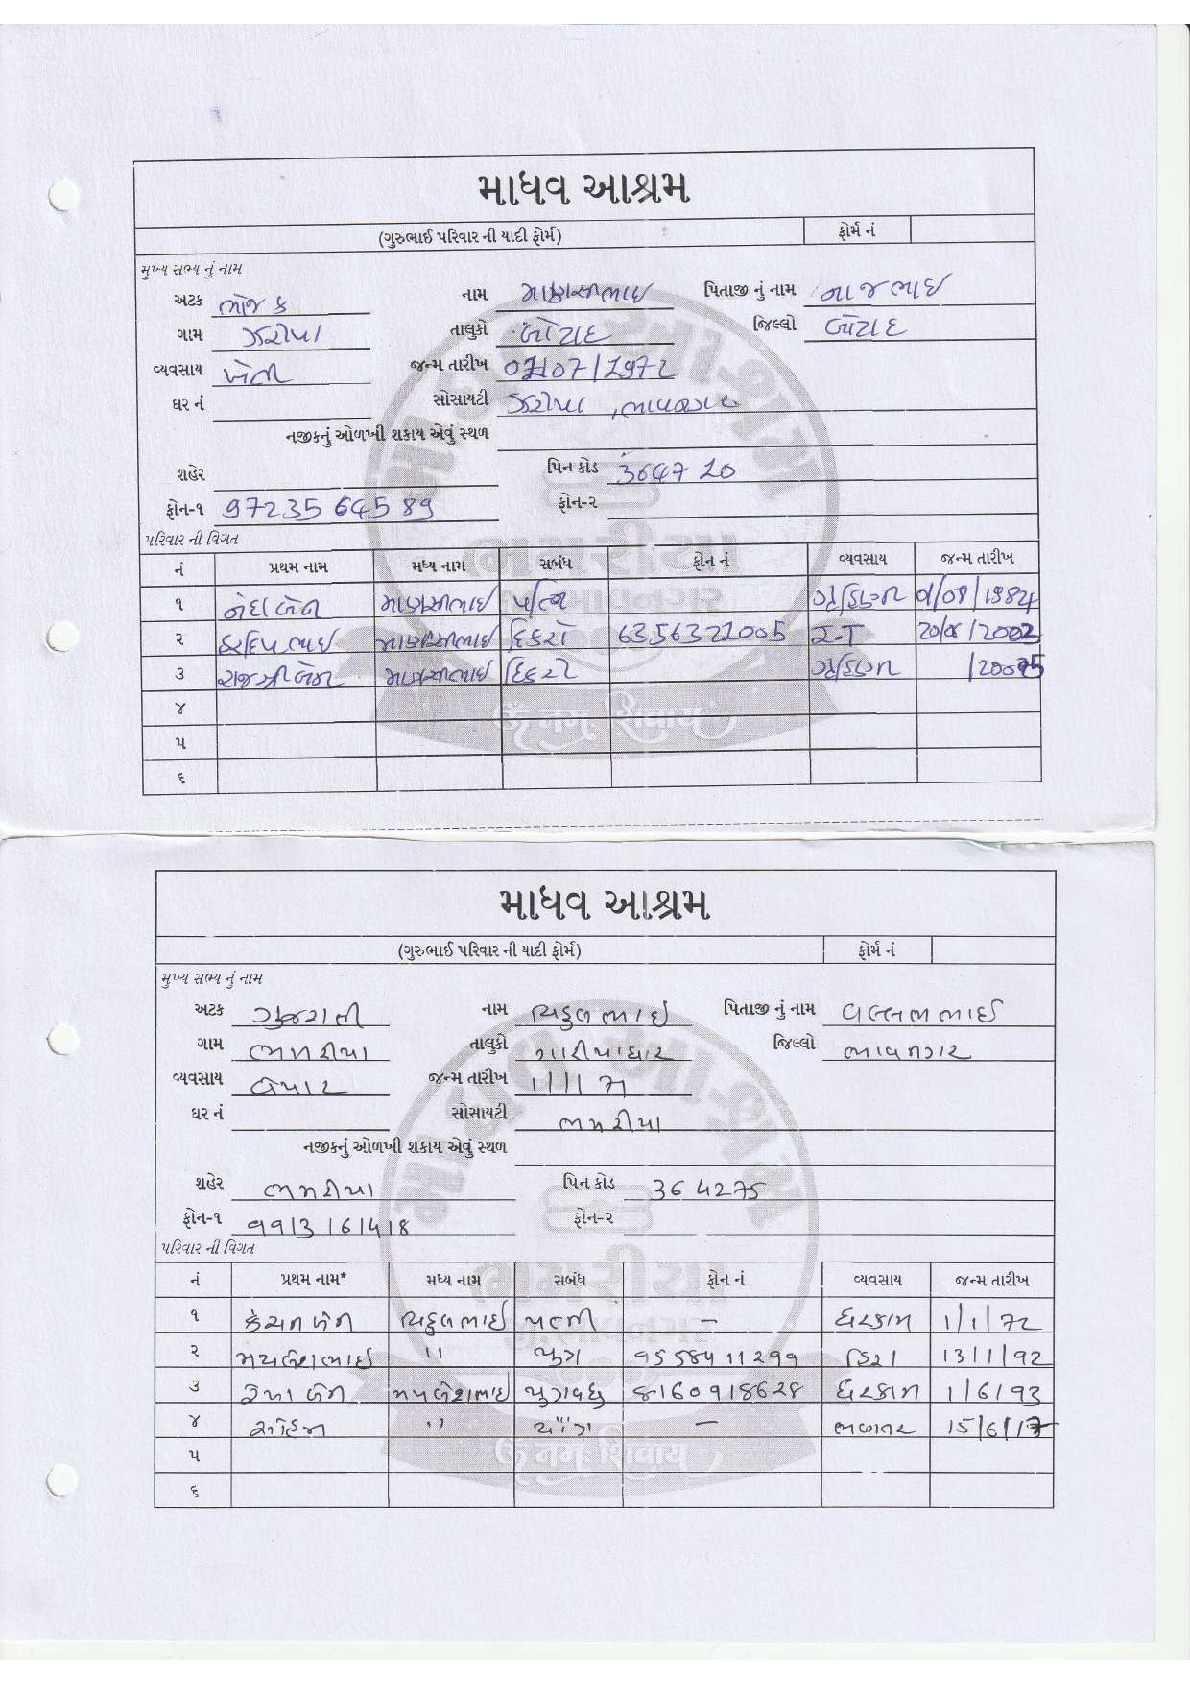 માધવ આશ્રમ
(ગુરુભાઈ પરિવાર ની યાદી ફોર્મ) ફોર્મ નં
મુખ્ય સભ્ય નું નામ
અટક ભોજક નામ માણસીભાઇ પિતાજી નું નામ નાજભાઇ
ગામ ઝરીયા તાલુકો બોટાદ જિલ્લો બોટાદ
વ્યવસાય ખેતી જન્મ તારીખ 07/07/1972
ઘર નં સોસાયટી ઝરીયા,
નજીકનું ઓળખી શકાય એવું સ્થળ
શહેર પિન કોડ 364720
ફોન-૧ 9723564589 ફોન-૨
પરિવાર ની વિગત
નં પ્રથમ નામ મધ્ય નામ સબંધ ફોન નં વ્યવસાય જન્મ તારીખ
૧ માણસીભાઇ પત્નિ
૨ માણસીભાઇ દિકરો 6356321005
૩ રાજશ્રીબેન માણસીભાઇ દિકરી
૪
૫
૬
ॐ नमः शिवाय
માધવ આશ્રમ
(ગુરુભાઈ પરિવાર ની યાદી ફોર્મ) ફોર્મ નં
મુખ્ય સભ્ય નું નામ
અટક ગુજરાતી નામ વિઠ્ઠલભાઇ પિતાજી નું નામ વલ્લભભાઈ
ગામ ભમરીયા તાલુકો ગારીયાધાર જિલ્લો ભાવનગર
વ્યવસાય વેપાર જન્મ તારીખ 1/1/71
ઘર નં સોસાયટી ભમરીયા
નજીકનું ઓળખી શકાય એવું સ્થળ
શહેર ભમરીયા પિન કોડ 364275
ફોન-૧ ૧૧13161418 ફોન-૨
પરિવાર ની વિગત
નં પ્રથમ નામ* મધ્ય નામ સબંધ ફોન નં વ્યવસાય જન્મ તારીખ
૧ કંચનબેન વિઠ્ઠલભાઈ પત્ની – ઘરકામ 1/1/72
૨ " પુત્ર ૧5584112૧૧ હિરા 13/1/૧2
૩ રેખાબેન પુત્રવધુ 8160918628 ઘરકામ 1/6/૧3
૪ " પૌત્ર – ભણતર 15/6/17
૫
૬
ॐ नमः शिवाय